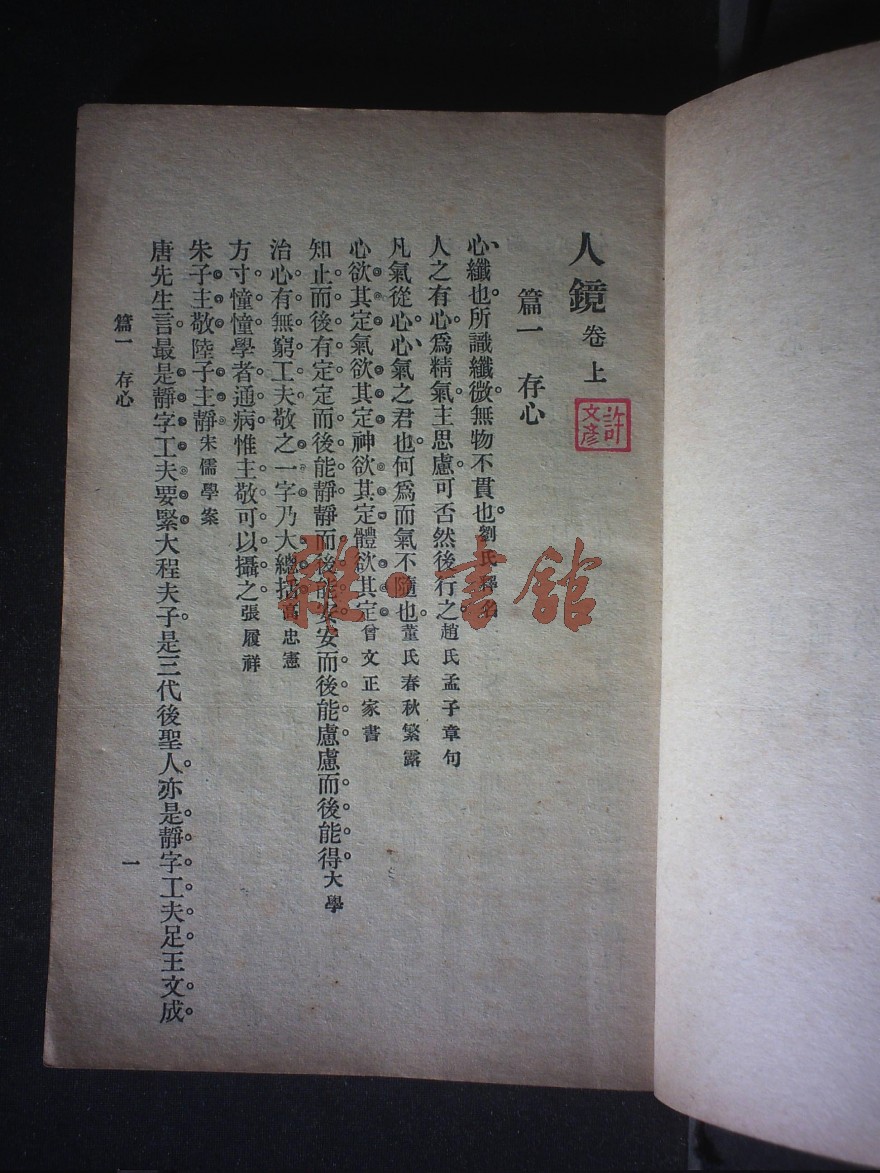 人鏡 卷上
許文彥
篇一 存心
心纖也所識纖微無物不貫也劉氏釋名
人之有心爲精氣主思慮可否然後行之趙氏孟子章句
凡氣從心心氣之君也何爲而氣不隨也董氏春秋繁露
心欲其定氣欲其定神欲其定體欲其定曾文正家書
知止而後有定定而後能靜靜而後能安安而後能慮慮而後能得大學
治心有無窮工夫敬之一字乃大總括高忠憲
方寸憧憧學者通病惟主敬可以攝之張履祥
朱子主敬陸子主靜宋儒學案
唐先生言最是靜字工夫要緊大程夫子是三代後聖人亦是靜字工夫足王文成
篇一 存心
一
雜·書館